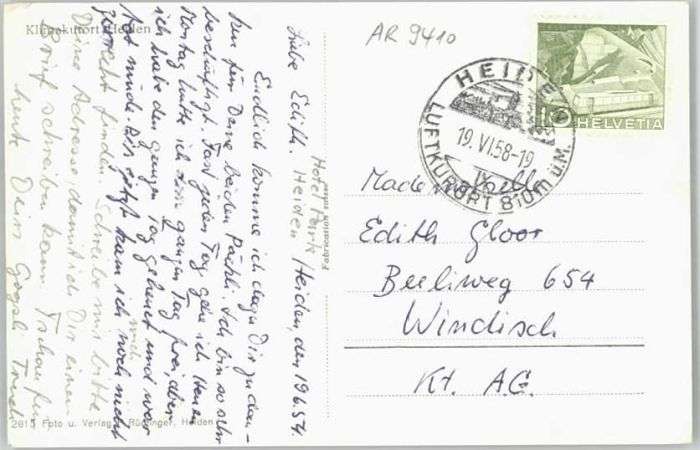 Klimakurort Heiden
AR 9410
HELVETIA
HEIDEN
19.VI.58-19
LUFTKURORT 810m ü.M.
Hotel Park
Heiden / Heiden, den 19.6.
Liebe Edith.
Endlich komme ich dazu Dir zu dan-
ken für Deine beiden Päckli. Ich bin so sehr
beschäftigt. Fast jeden Tag gehe ich
Montag hatte ich den ganzen Tag frei, aber
ich habe den ganzen Tag und war
tot müd. Bis jetzt kan ich mich noch nicht
zurecht finden. Schreibe mir bitte
Deine Adresse damit ich Dir einen
Brief schreiben kann. Tschau für
heute Dein
Fabrication suisse
Edith Gloor
Beeliweg 654
Windisch
Kt. AG.
2613 Foto u. Verlag Rüdinger, Heiden